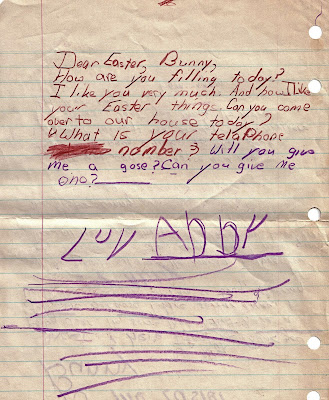 Dear Easter Bunny,
How are you filling today?
I like you very much. And how I like
your Easter things. Can you come
over to our house today?
What is your telaphone
nomber? Will you give
me a gose? Can you give me
one?
Luv Abby